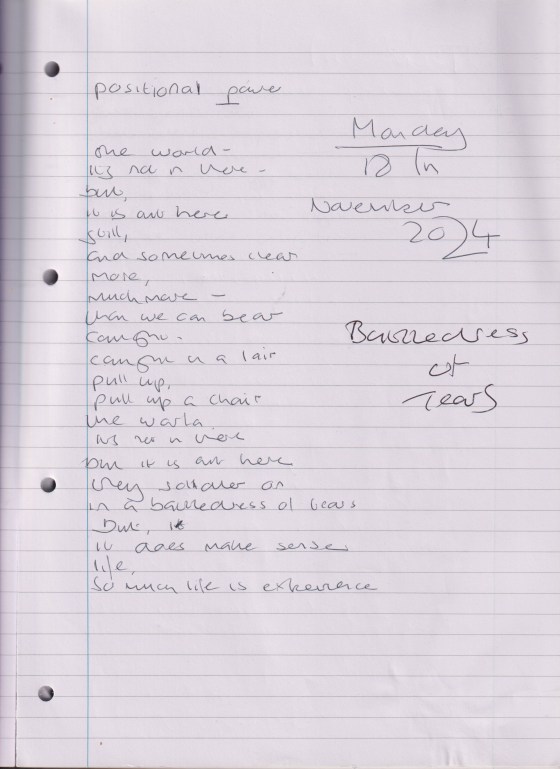 positional power
Monday
18th
November
2024
the world -
its not in there -
but,
it is out here
still,
and sometimes clear
more,
much more -
than we can bear
caught.
caught in a lair
pull up,
pull up a chair
the world.
its not in there
but it is out here
they soldier on
in a of tears
but, it
it does make sense
life,
so much life is experience
of
Tears